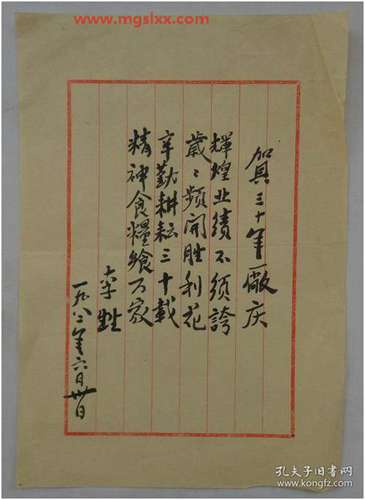 www.mgslxx.com
賀三十年廠庆
輝煌业绩不须誇
歲々頻開胜利花
辛勤耕耘三十載
精神食糧飨万家
李
一九八二年六月卅日
孔夫子旧书网
kongfz.com